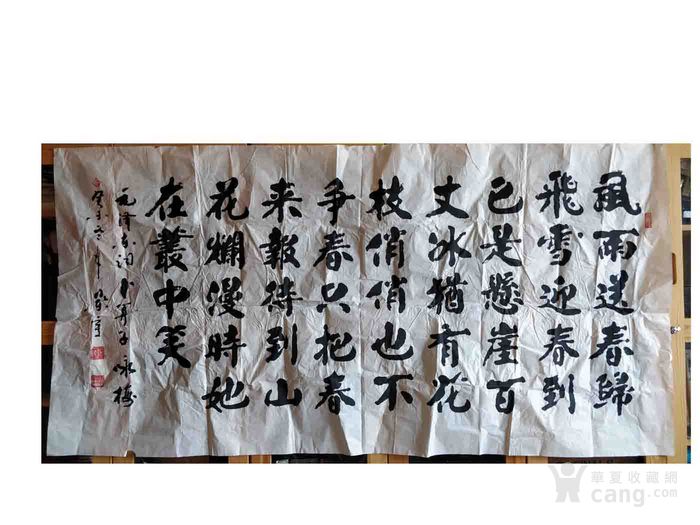 風雨送春歸
飛雪迎春到
已是懸崖百
丈冰猶有花
枝俏俏也不
爭春只把春
来報待到山
花爛漫時她
在叢中笑
毛澤東词卜算子咏梅
華夏收藏網
cang.com